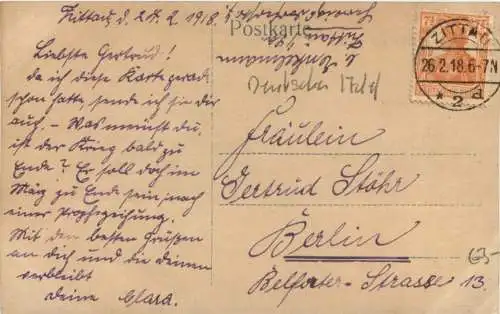 Zittau, d. 24. 2. 1918.
Liebste Gertrud!
da ich diese Karte gerade
schon hatte, sende ich sie dir
auf. – Was meinst du,
ist der Krieg bald zu
Ende? Er soll doch im
März zu Ende sein, nach
einer Prophezeihung.
Mit den besten Grüßen
an dich und die deinen
verbleibt
deine Clara.
Postkarte
ZITTAU
26.2.18.6-7N
* 2 d
7½
Fräulein
Gertrud Stöhr
Berlin
Belforter-Strasse 13.
65-